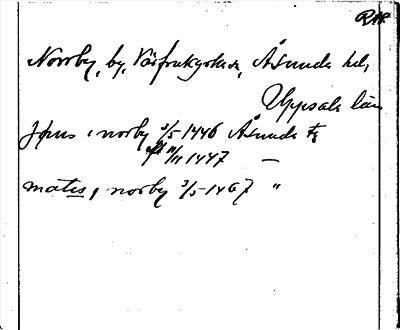 Norrby, by, Vårfrukyrka sn, Åsunda hd,
Uppsala län
Jþus i norby 3/5 1446 Åsunda
11/11 1447 —
matis, norby 3/5 1467 "